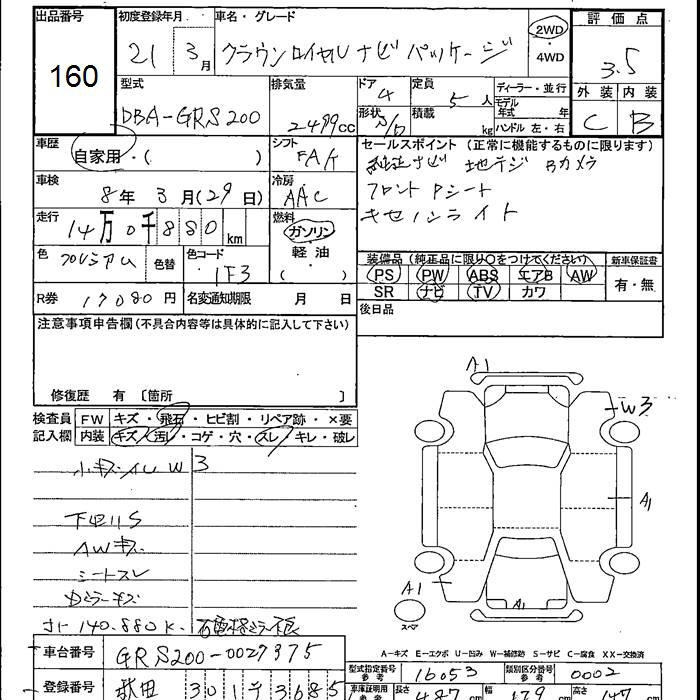 出品番号
160
初度登録年月
21 3月
車名・グレード
クラウンロイヤル ナビパッケージ
2WD
・
4WD
評価点
3.5
外装 内装
C B
型式
DBA-GRS200
排気量
2499cc
ドア
4
形状
S/D
定員
5人
積載
kg
ディーラー・並行
モデル年式 年
ハンドル 左・右
車歴
自家用・( )
シフト
FAT
セールスポイント (正常に機能するものに限ります)
純正ナビ 地デジ Bカメラ
フロントPシート
キセノンライト
車検
8年 3月(29日)
冷房
AAC
走行
14万0千880km
燃料
ガソリン
軽油
( )
色
プレミアム
色替
色コード
1F3
装備品 (純正品に限り○をつけてください)
PS PW ABS エアB AW
SR ナビ TV カワ
新車保証書
有・無
R券 17080円
名変通知期限 月 日
後日品
注意事項申告欄(不具合内容等は具体的に記入して下さい)
修復歴 有 〔箇所 〕
検査員記入欄
FW キズ・飛石・ヒビ割・リペア跡・×要
内装 キズ・汚レ・コゲ・穴・スレ・キレ・破レ
小キズ凹 W3
下回りS
AWキズ
シートスレ
140.880K
A1
W3
A1
A1
A1
スペア
A-キズ E-エクボ U-凹み W-補修跡 S-サビ C-腐食 XX-交換済
車台番号
GRS200-0027375
型式指定番号
参考
16053
類別区分番号
参考
0002
登録番号
秋田 301 テ 3685
車庫証明用
参考
長さ
487cm
幅
179cm
高さ
147cm